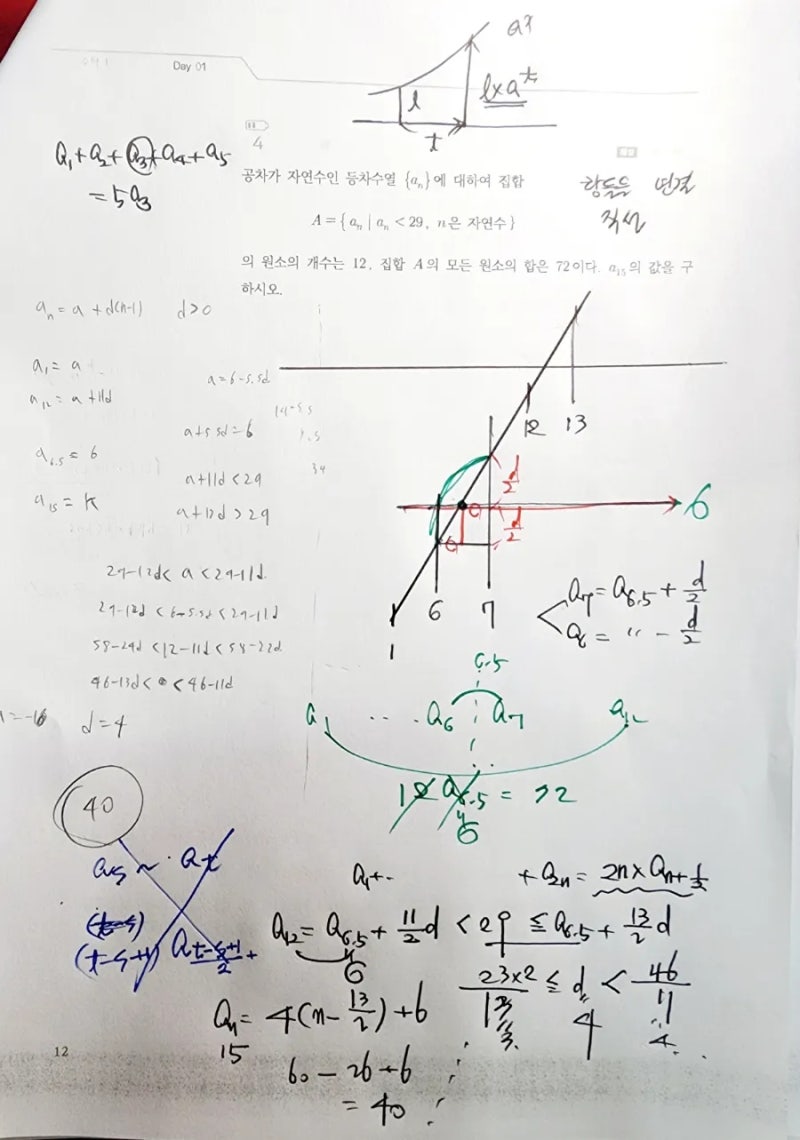 Day 01
a^x
l
l×a^t
t
4
a₁+a₂+a₃+a₄+a₅
=5a₃
공차가 자연수인 등차수열 {aₙ}에 대하여 집합
A={aₙ | aₙ < 29, n은 자연수}
의 원소의 개수는 12, 집합 A의 모든 원소의 합은 72이다. a₁₅의 값을 구
하시오.
항들을 연결
직선
aₙ = a + d(n-1) d>0
a₁ = a
a₁₂ = a + 11d
a₆.₅ = 6
a₁₅ = k
a=6-5.5d
a+5.5d=6
a+11d<29
a+12d>29
29-12d< a <29-11d
29-12d <6-5.5d <29-11d
58-24d <12-11d <58-22d
46-13d< 0 < 46-11d
d=4
40
12 13
d/2
d/2
6
1 6 7
a₇=a₆.₅+d/2
a₆= 〃 - d/2
6.5
a₁ ... a₆ a₇ a₁₂
12 a₆.₅ = 72
6
a₅ ~ a_t
(t-s)
(t-s+1)
a₁+.. + a₂ₙ= 2n×aₙ+½
a₁₂= a₆.₅+ 11/2 d < 29 ≤ a₆.₅+ 13/2 d
6
23×2/13 ≤ d < 46/11
4
aₙ= 4(n- 13/2)+6
15
60-26+6
= 40
12